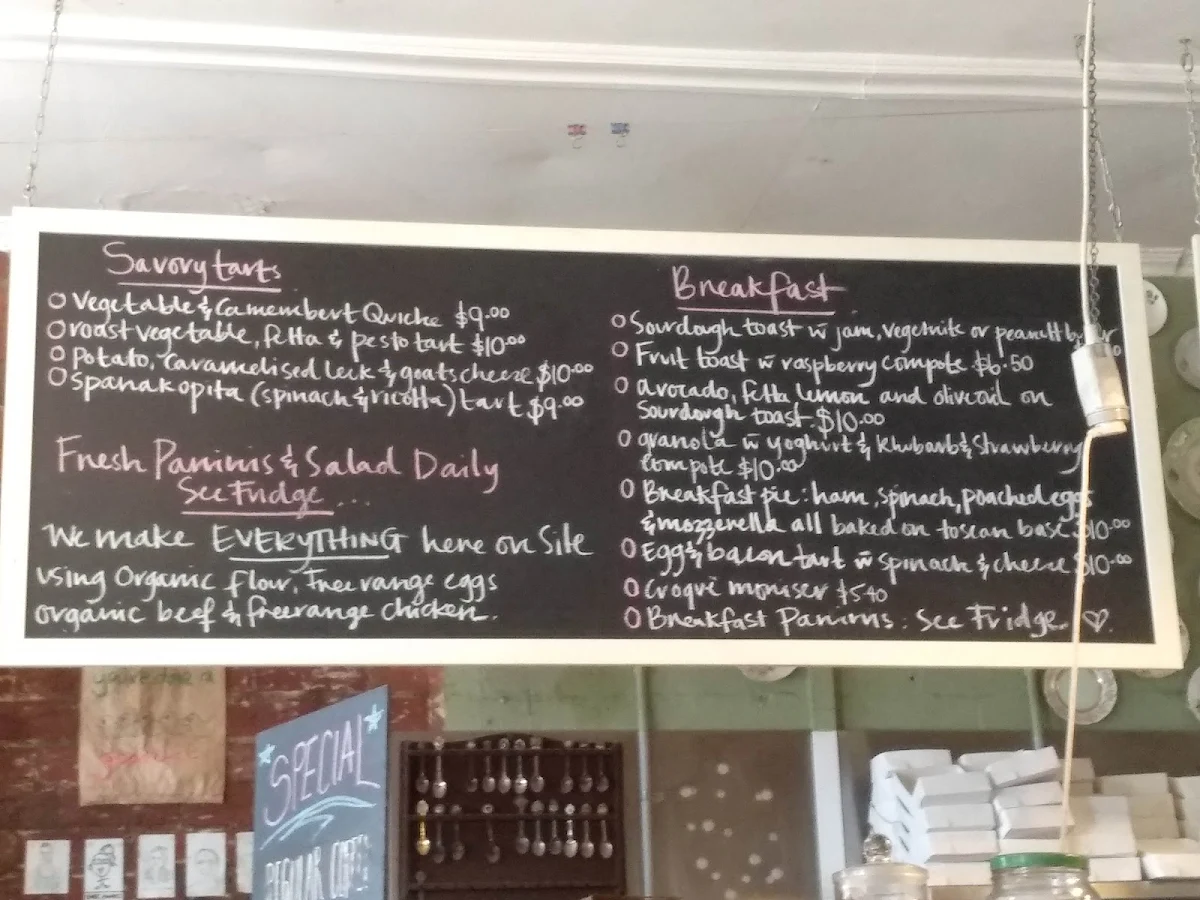 Savory tarts
Vegetable & Camembert Quiche $9.00
roast vegetable, fetta & pesto tart $10.00
Potato, Caramelised leek & goats cheese $10.00
Spanakopita (spinach & ricotta) tart $9.00
Fresh Paninis & Salad Daily
See Fridge...
We make EVERYTHING here on Site
using Organic flour, Free range eggs
organic beef & freerange chicken.
Breakfast
Sourdough toast w̃ jam, vegemite or peanutt
Fruit toast w̃ raspberry compote $6.50
avocado, fetta, lemon and olive oil on
Sourdough toast $10.00
granola w̃ yoghurt & Rhubarb & Strawberry
compote $10.00
Breakfast pie: ham, spinach, poached eggs
& mozzerella all baked on toscan base $10.00
Egg & bacon tart w̃ spinach & cheese $10.00
Croque moniser $5.40
Breakfast Paninis: See Fridge. ♡
SPECIAL
REGULAR